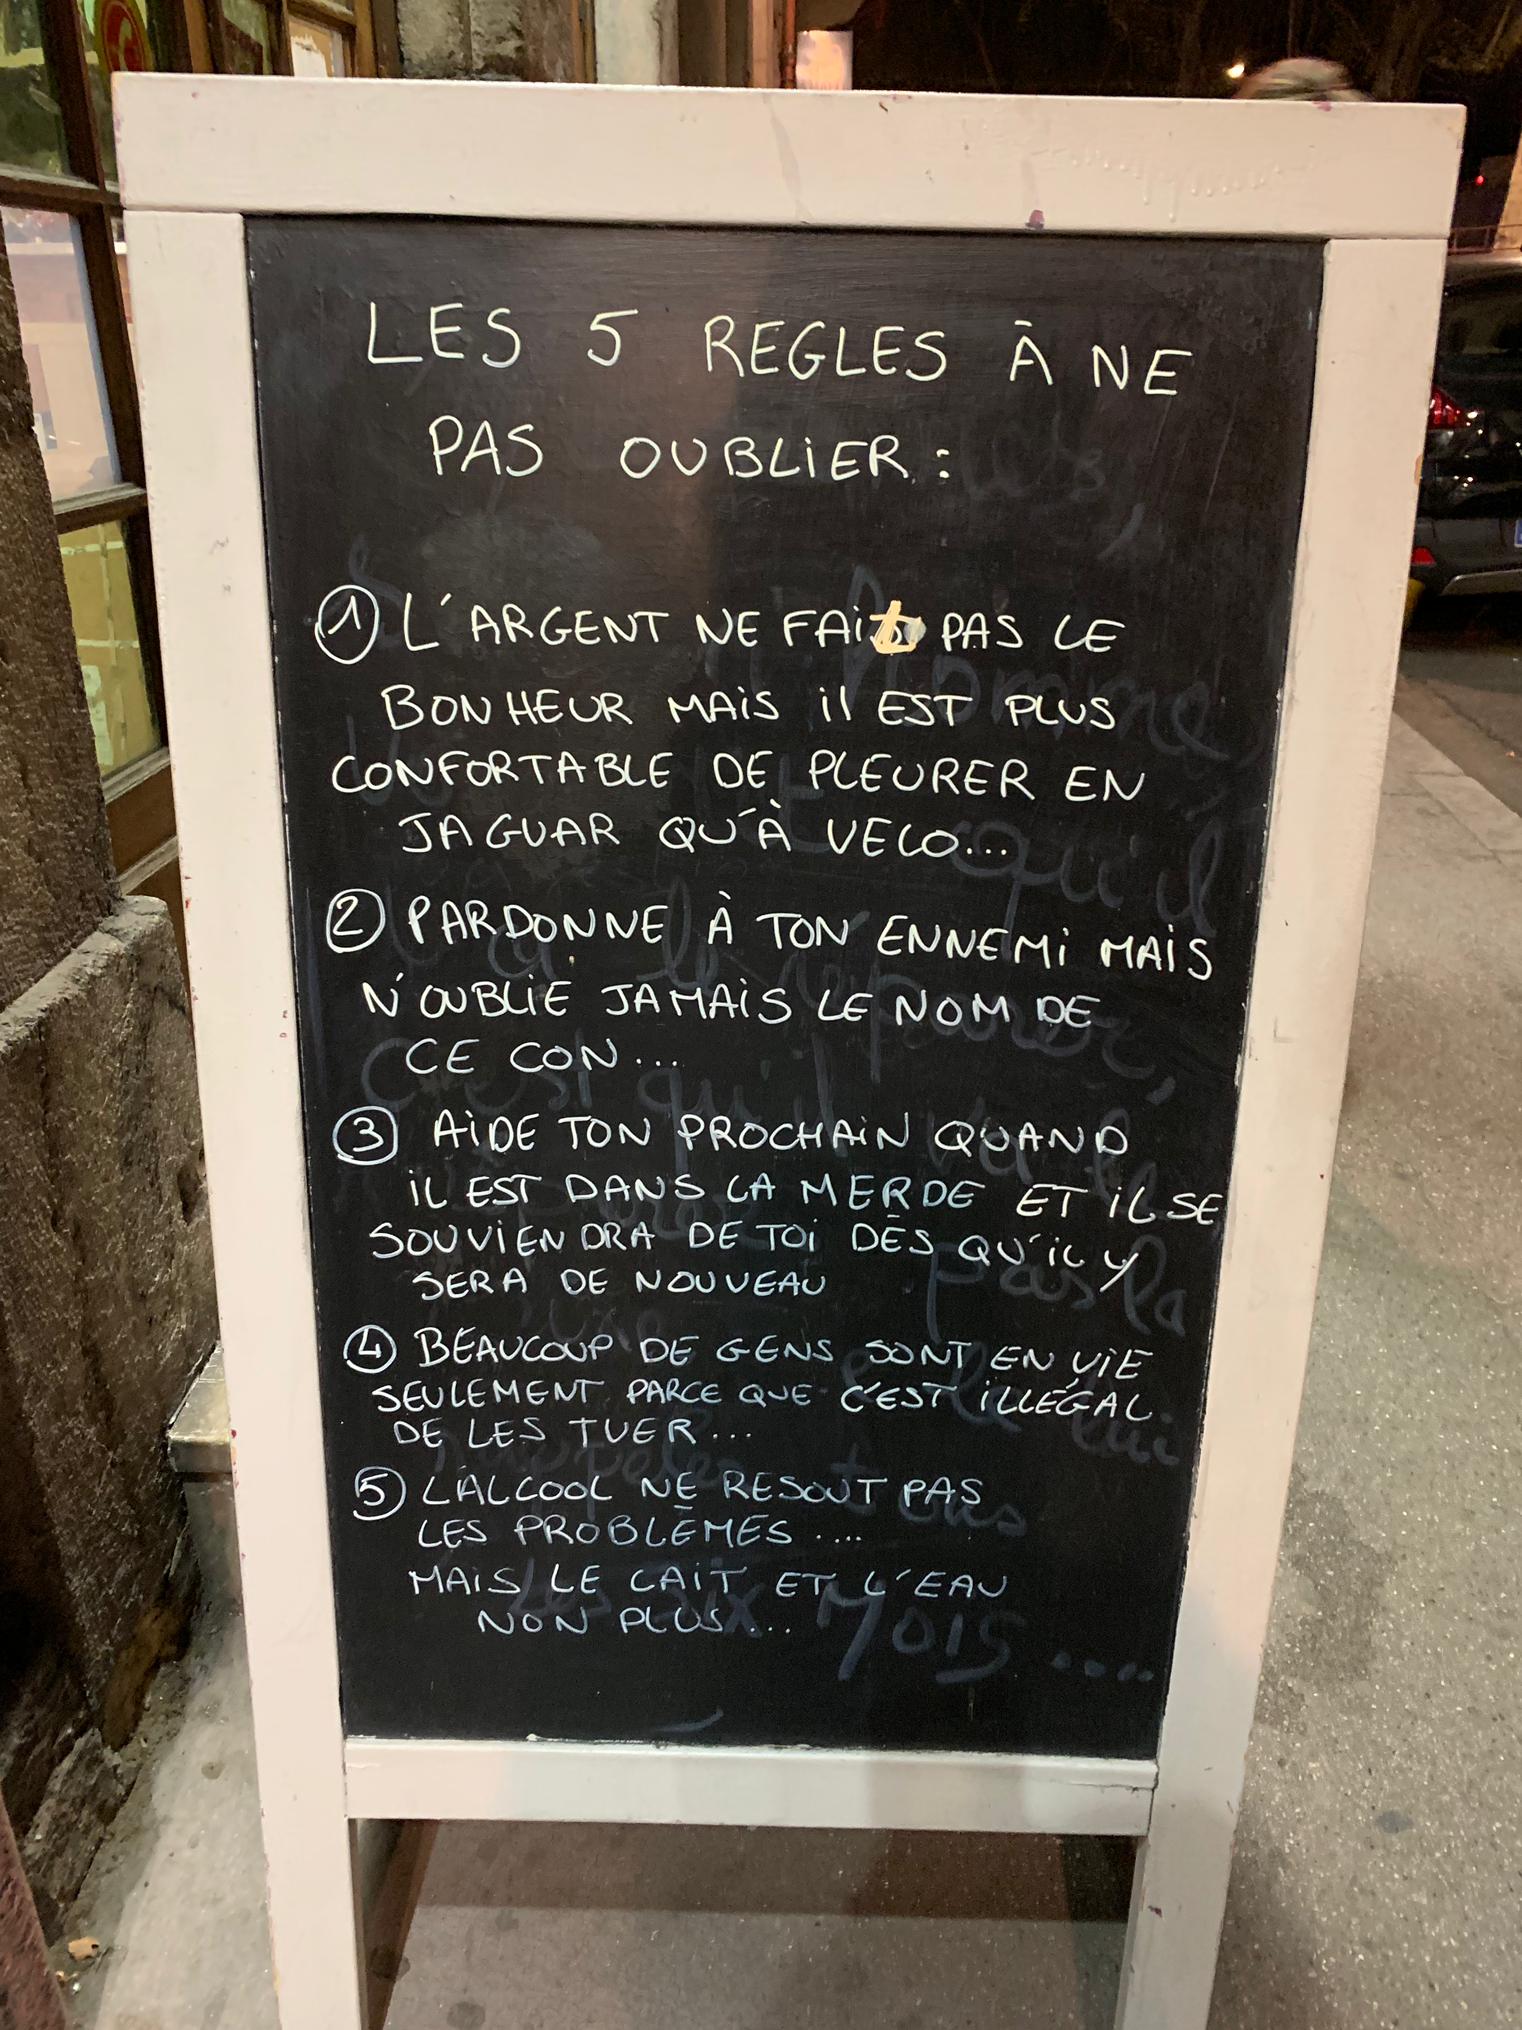 LES 5 REGLES À NE
PAS OUBLIER :
1 L'ARGENT NE FAIt PAS LE
BONHEUR MAIS il EST PLUS
CONFORTABLE DE PLEURER EN
JAGUAR QU'À VELO...
2 PARDONNE À TON ENNEMI MAIS
N'OUBLIE JAMAIS LE NOM DE
CE CON...
3 AIDE TON PROCHAIN QUAND
IL EST DANS LA MERDE ET IL SE
SOUVIENDRA DE TOI DÈS QU'IL Y
SERA DE NOUVEAU
4 BEAUCOUP DE GENS SONT EN VIE
SEULEMENT PARCE QUE C'EST ILLÉGAL
DE LES TUER...
5 L'ALCOOL NE RESOUT PAS
LES PROBLÈMES....
MAIS LE LAIT ET L'EAU
NON PLUS...